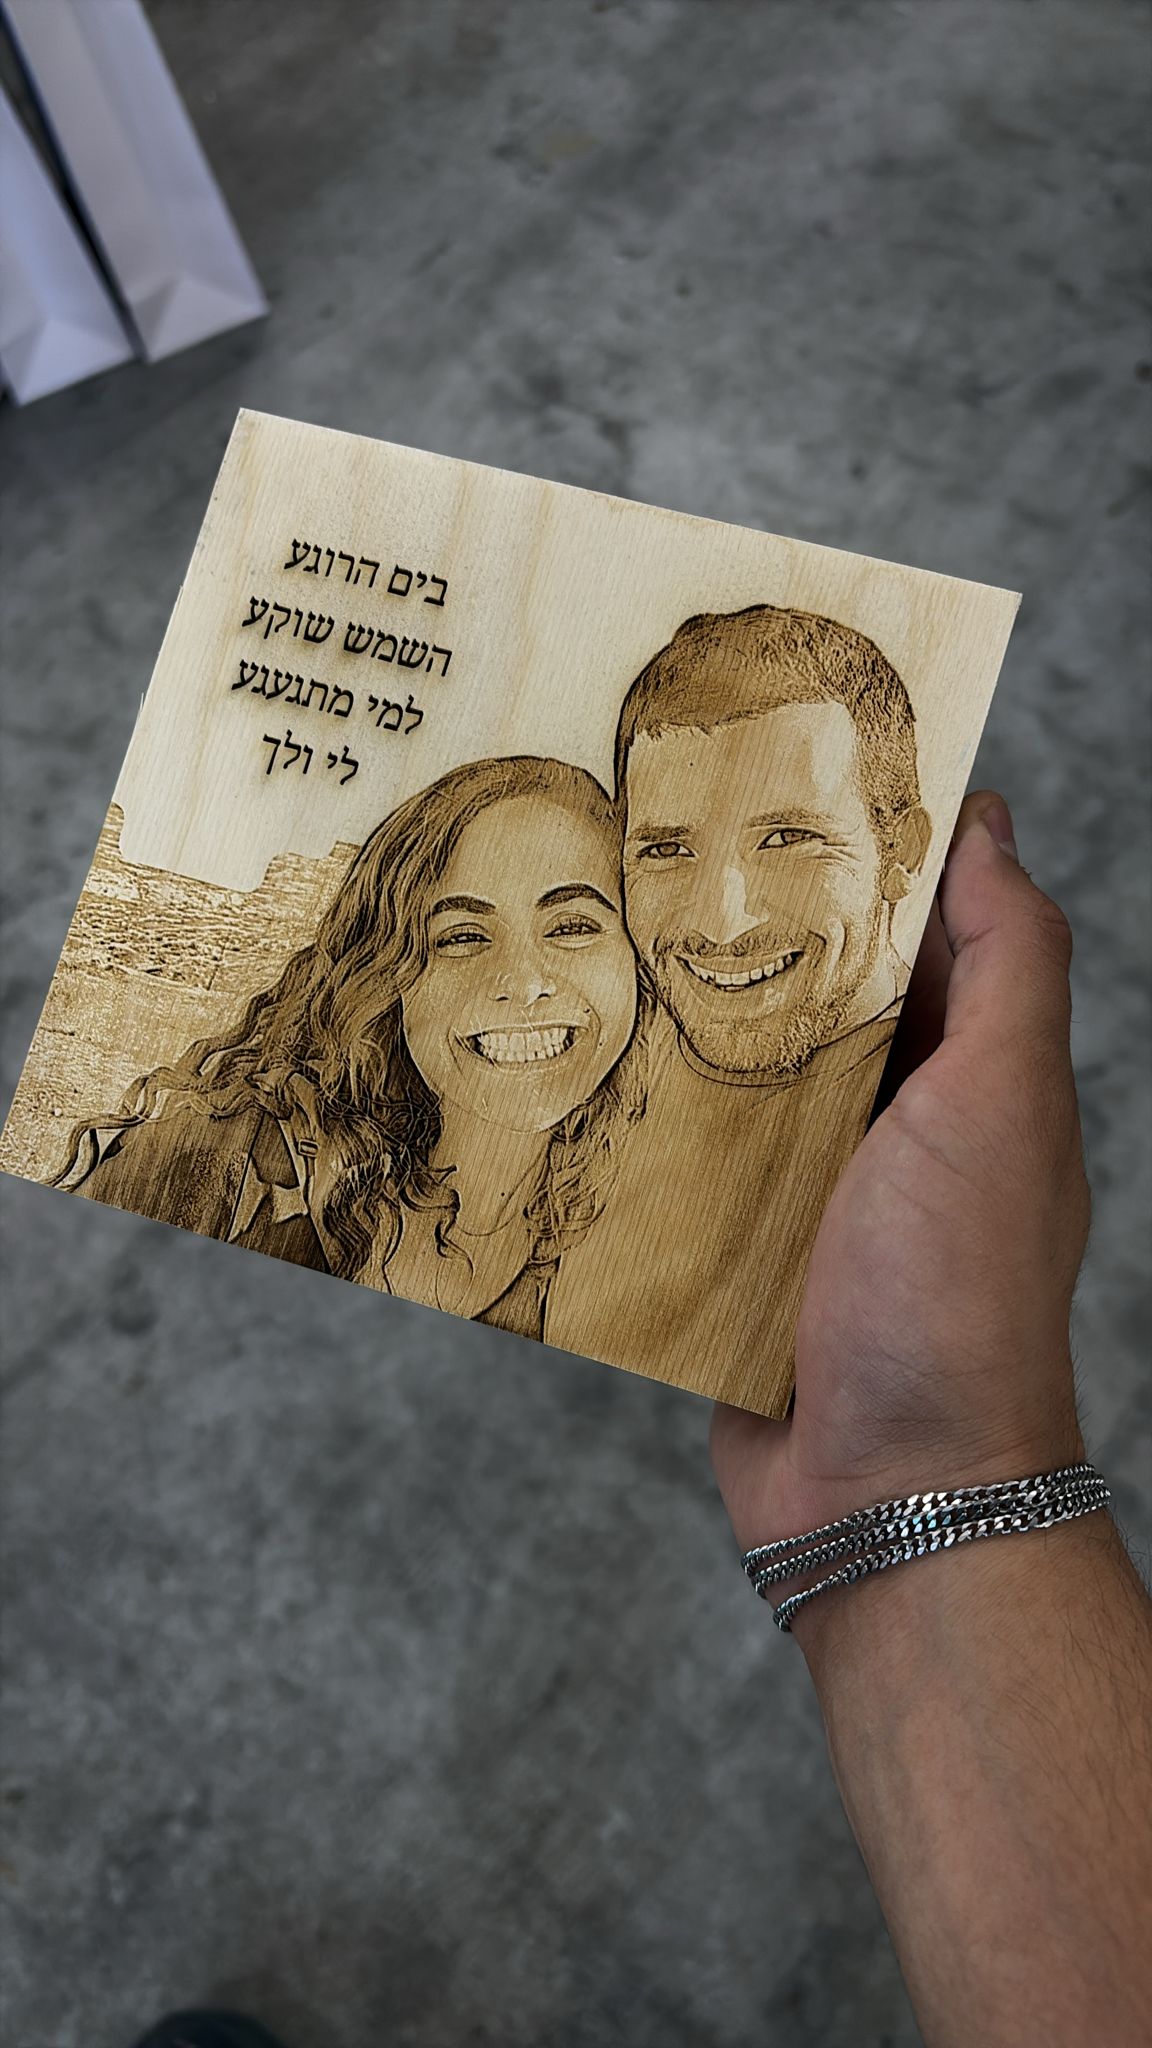 בים הרוגע
השמש שוקע
למי מתגעגע
לי ולך